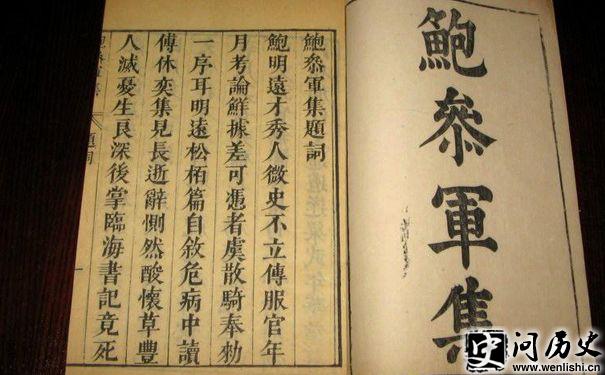 鮑叅軍集
鮑叅軍集題詞
鮑明遠才秀人微史不立傳服官年
月考論鮮據差可憑者虞散騎奉勑
一序耳明遠松栢篇自敘危病中讀
傅休奕集見長逝辭惻然酸懷草豐
人滅憂生良深後掌臨海書記竟死
題詞
问历史
www.wenlishi.cn